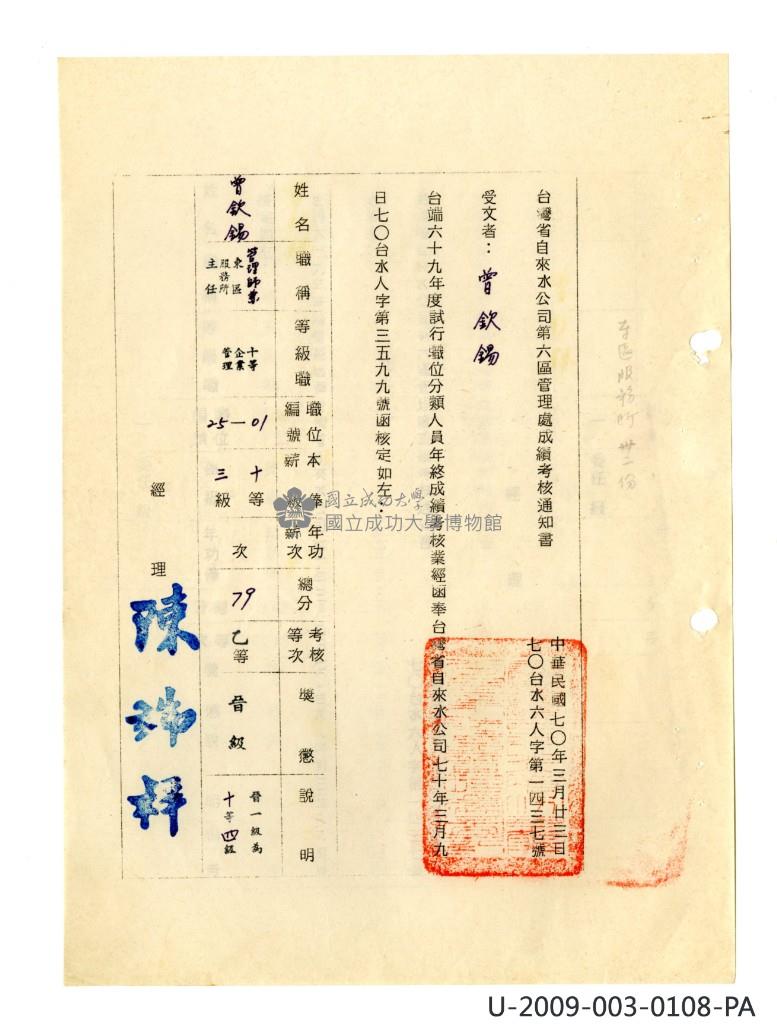 台灣省自來水公司第六區管理處成績考核通知書
中華民國七〇年三月廿三日
七〇台水六人字第一四三七號
受文者：曾欽錫
台端六十九年度試行職位分類人員年終成績考核業經函奉台灣省自來水公司七十年三月九
日七〇台水人字第三五九九號函核定如左：
姓名
職稱
等級職
職位編號
本俸薪級
年功薪次
總分
考核等次
獎懲
說明
曾欽錫
管理師兼
東區服務所主任
十等
企業管理
01—25
十等三級
次
79
乙等
晉級
晉一級為
十等四級
經理
陳瑞拜
東區服務所
國立成功大學
國立成功大學博物館
U-2009-003-0108-PA